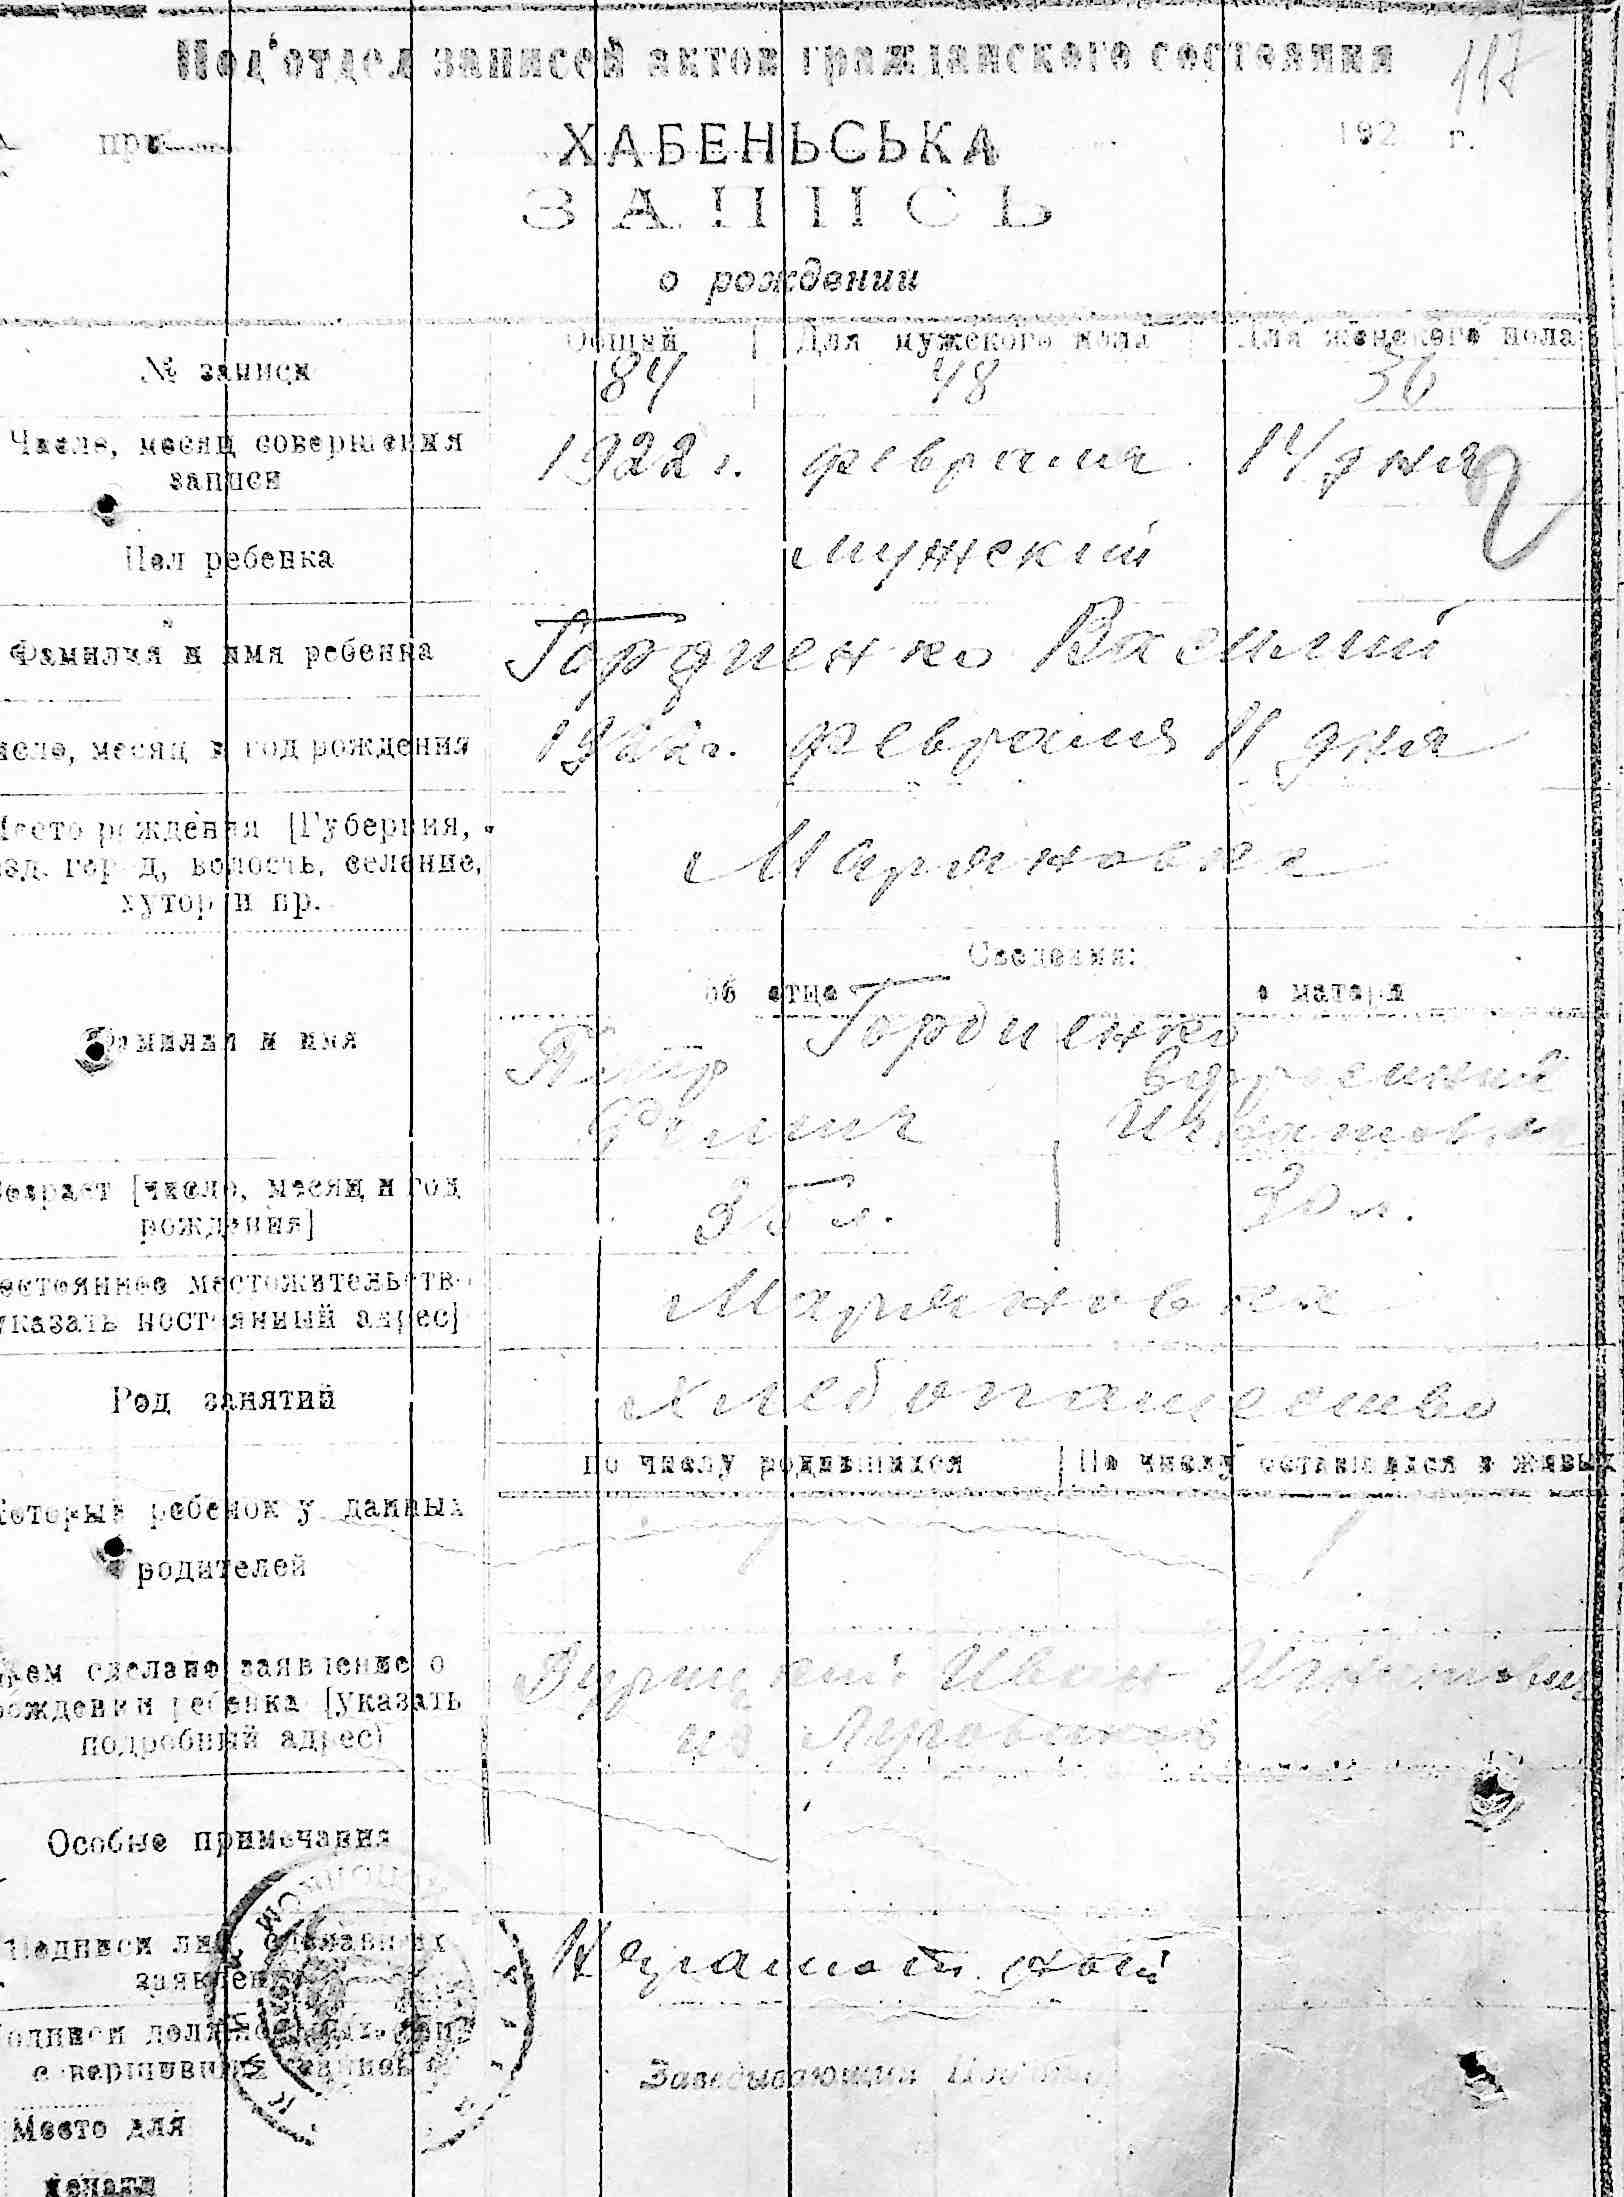 Под'отдел записей актов гражданского состояния
117
при
ХАБЕНЬСЬКА
192 г.
ЗАПИСЬ
о рождении
Общий Для мужского пола Для женского пола
№ записи 84 48 36
Число, месяц совершения записи
1922 г. февраля 14 дня
Пол ребенка
мужский
Фамилия и имя ребенка
Гордиенко Василий
число, месяц и год рождения
1922 г. февраля 11 дня
Место рождения [Губерния,
уезд, город, волость, селение,
хутор и пр.
Маряновка
Сведения:
об отце о матери
Фамилия и имя
Гордиенко
Петр
Возраст [число, месяц и год
рождения]
35 л. 30 л.
местожительство
указать постоянный адрес]
Маряновка
Род занятий
хлебопашество
По числу родившихся По числу оставшихся в живых
Который ребенок у данных
родителей
Кем сделано заявление о
рождении ребенка [указать
подробный адрес)
Иван
из
Особые примечания
Подписи лиц, сделавших
заявление
Неграмотной
Подписи должностных лиц
совершивших
Заведывающий
Место для
печати